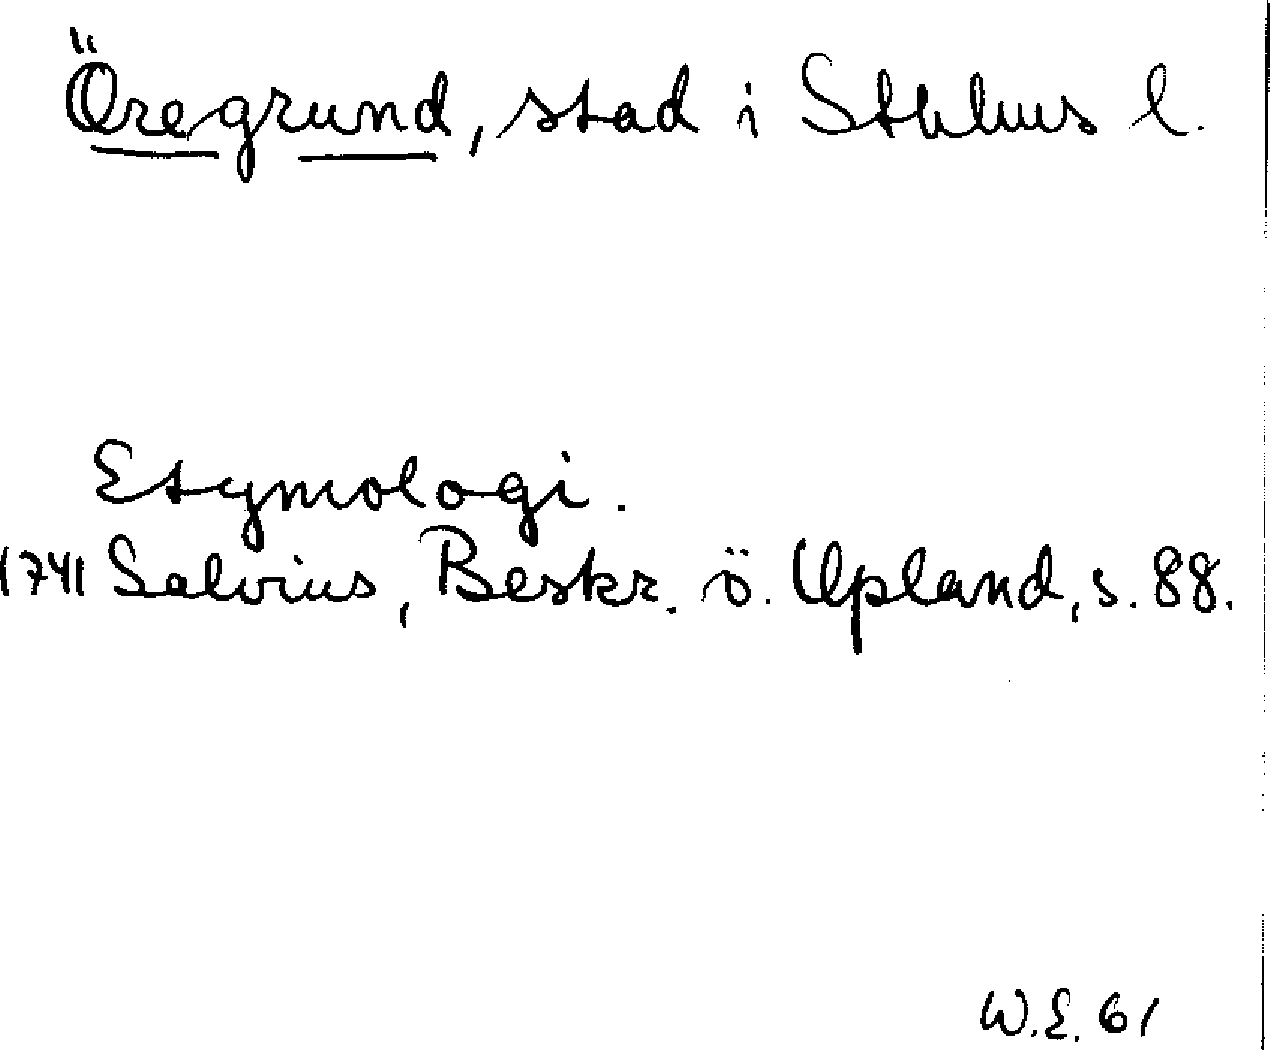 Öregrund, stad i Sthlms l.
Etymologi.
1741 Salvius, Beskr. ö. Upland, s. 88.
W.E. 61